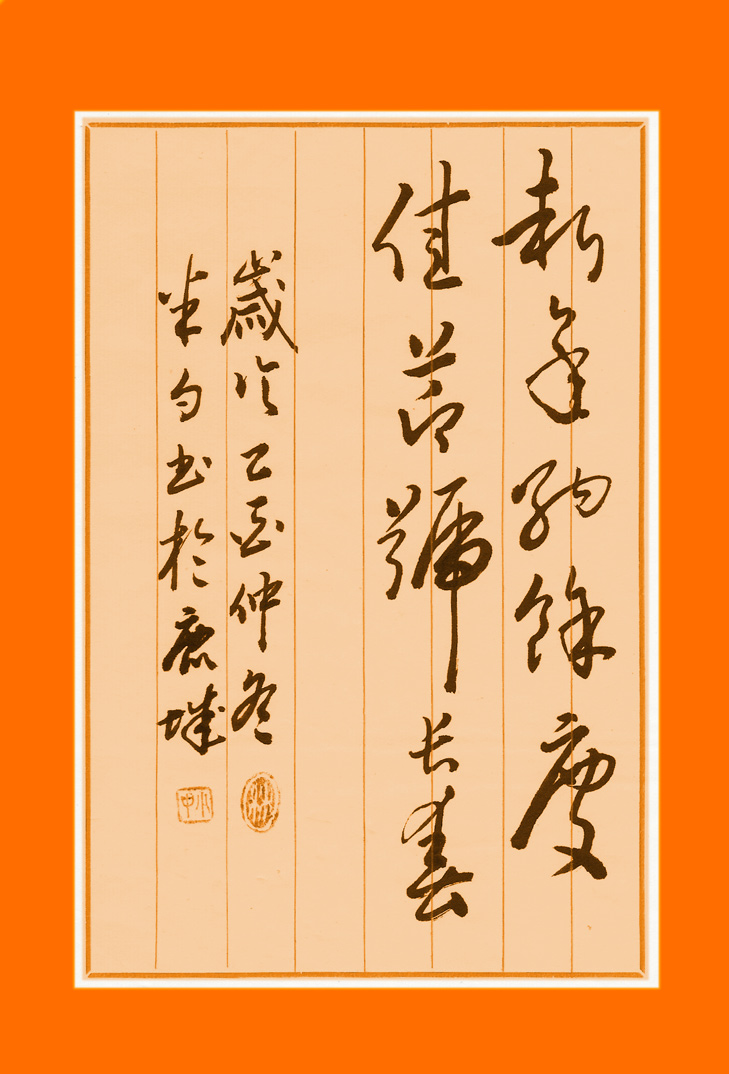 新年納餘慶
佳節號長春
歲次乙酉仲冬
米勺書於鹿城